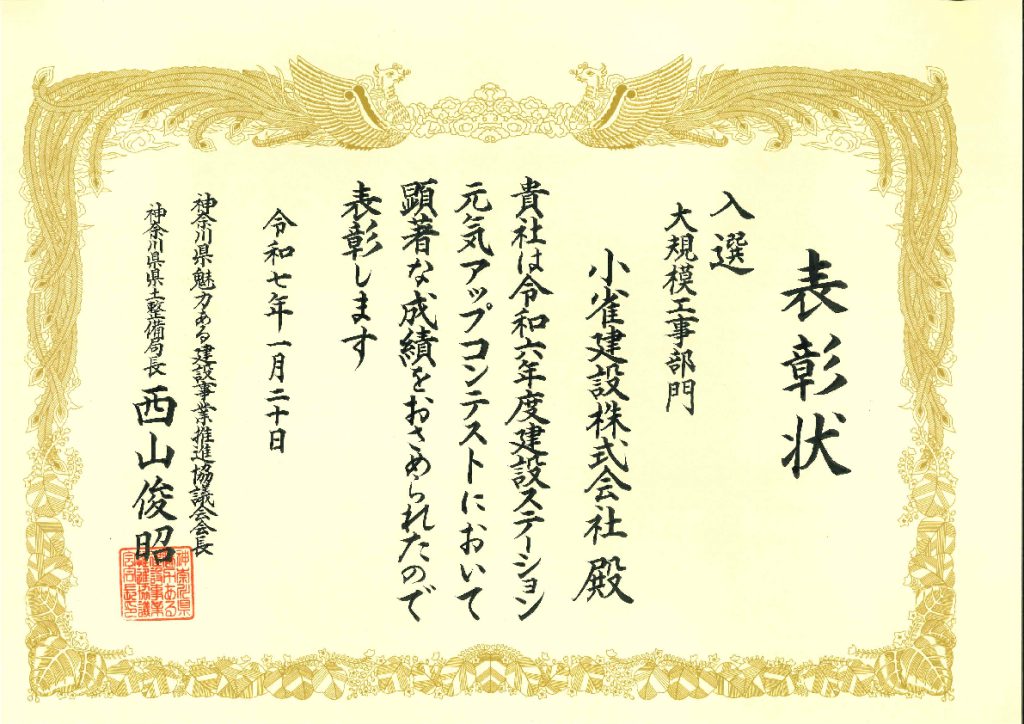 表彰状
入選
大規模工事部門
小雀建設株式会社 殿
貴社は令和六年度建設ステーション
元気アップコンテストにおいて
顕著な成績をおさめられたので
表彰します
令和七年一月二十日
神奈川県魅力ある建設事業推進協議会会長
神奈川県県土整備局長 西山俊昭